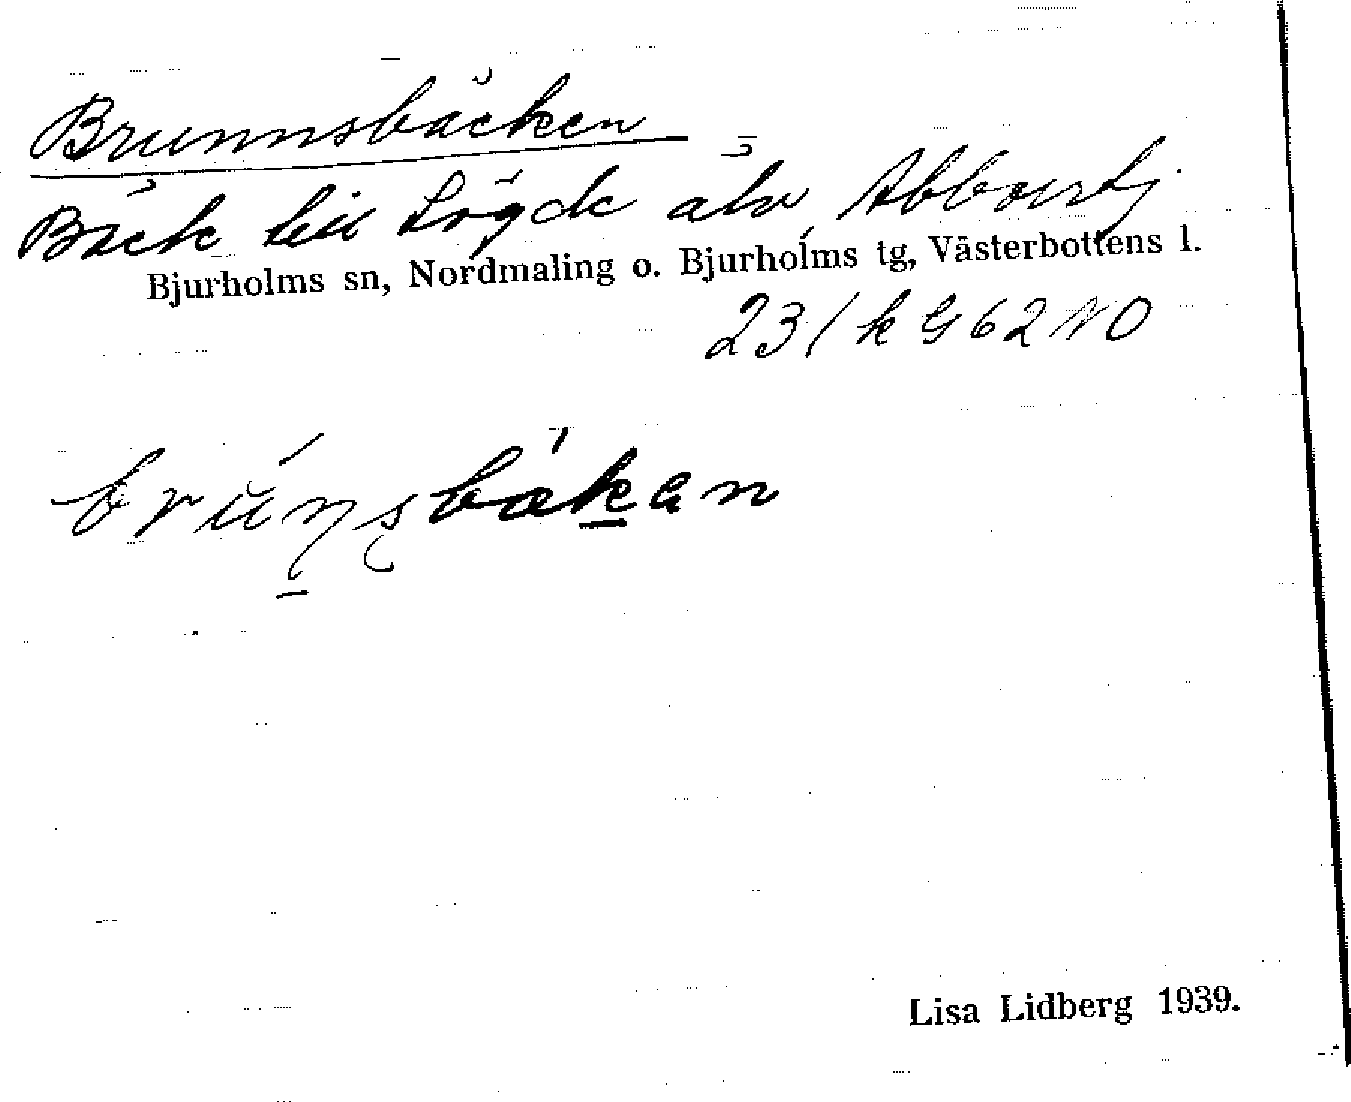 Brunnsbäcken
Bäck till Lögde älv, Abborrtj
Bjurholms sn, Nordmaling o. Bjurholms tg, Västerbottens l.
23/k G62NO
Lisa Lidberg 1939.